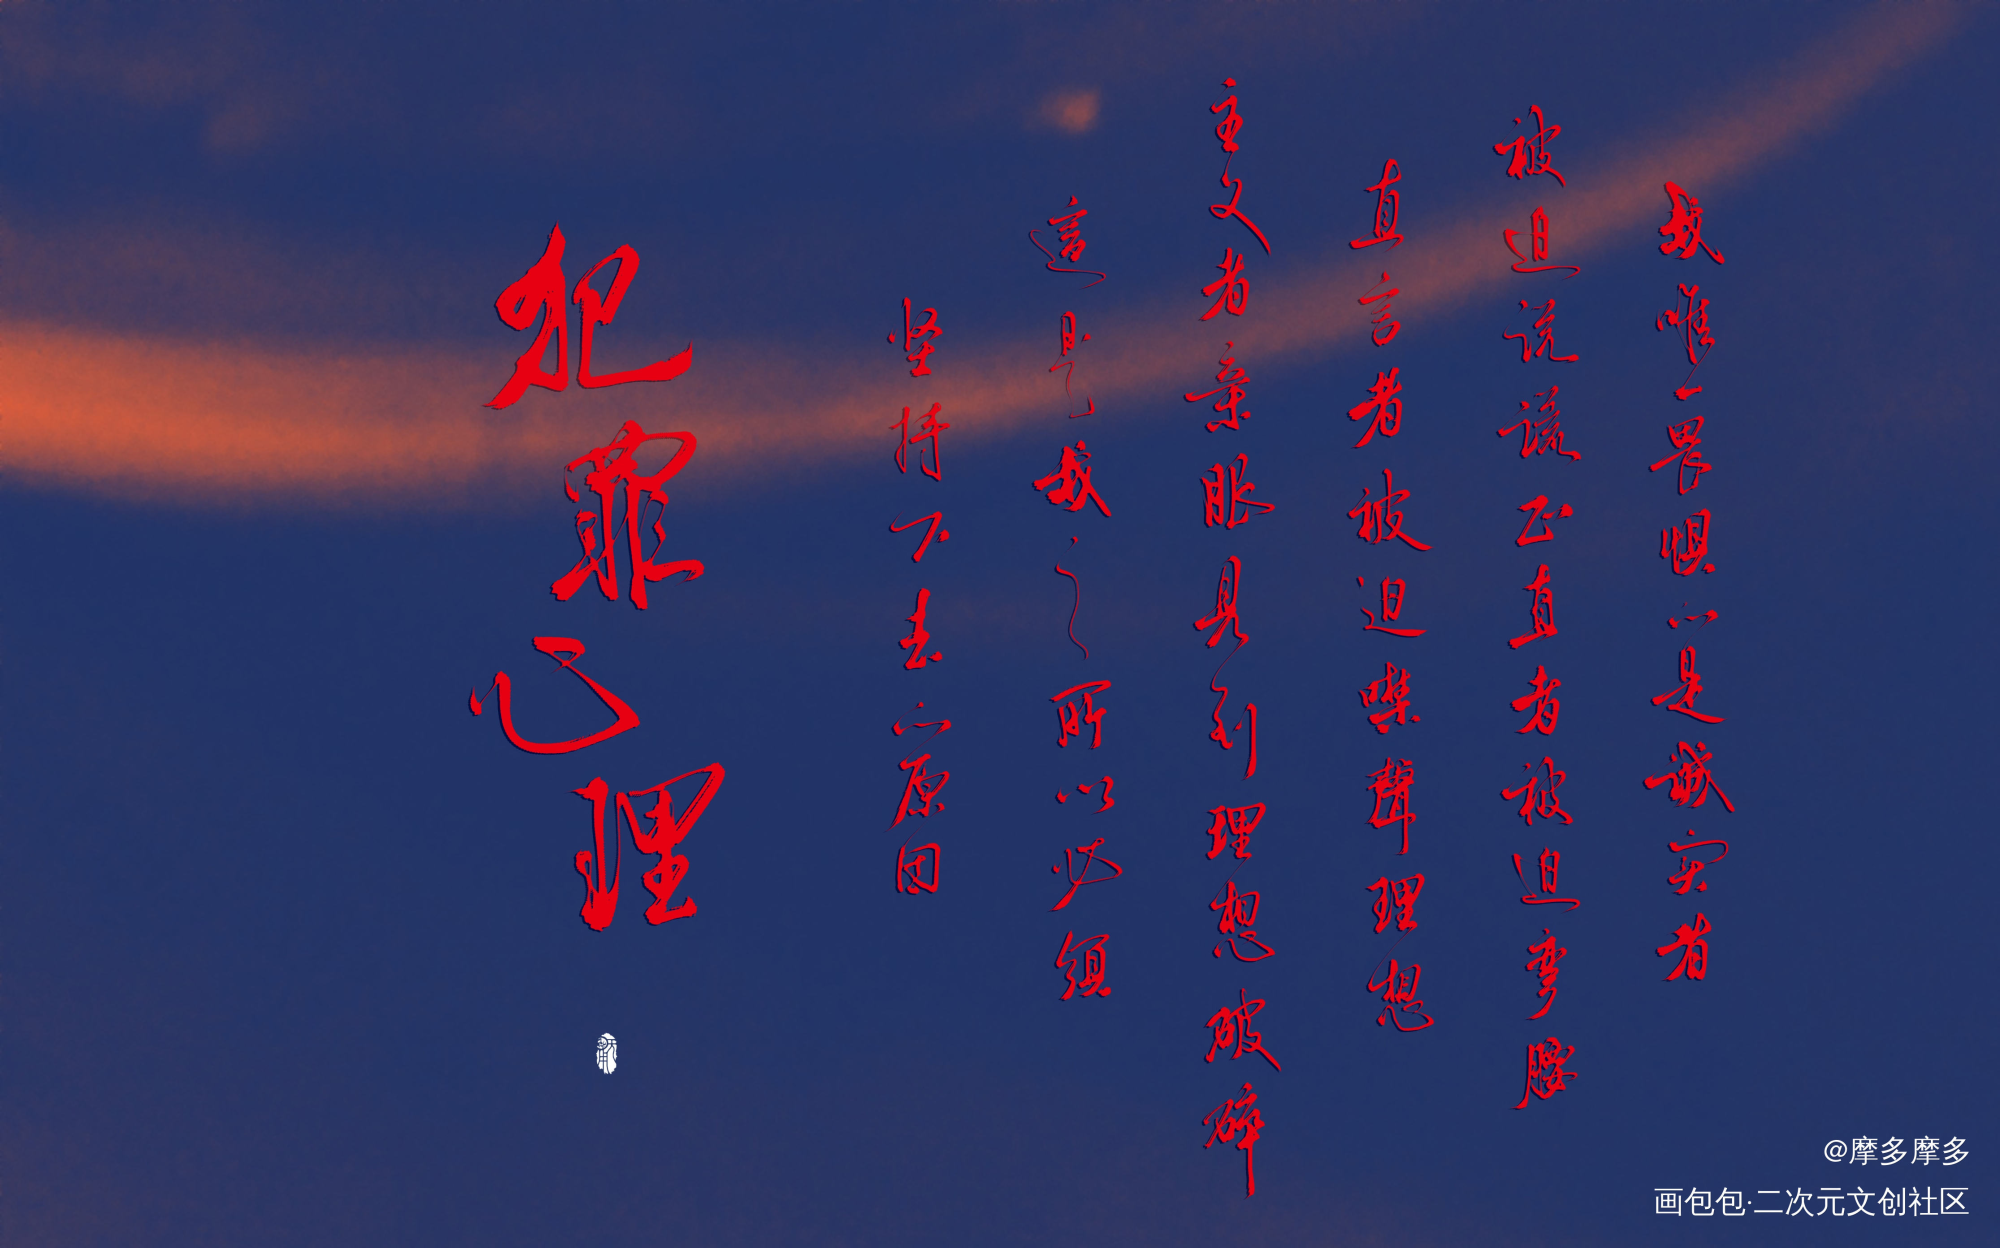 我唯一畏惧的是誠实者
被迫说谎正直者被迫弯腰
直言者被迫噤聲理想
主义者亲眼見到理想破碎
這是我之所以必須
坚持下去的原因
犯罪心理
@摩多摩多
画包包·二次元文创社区